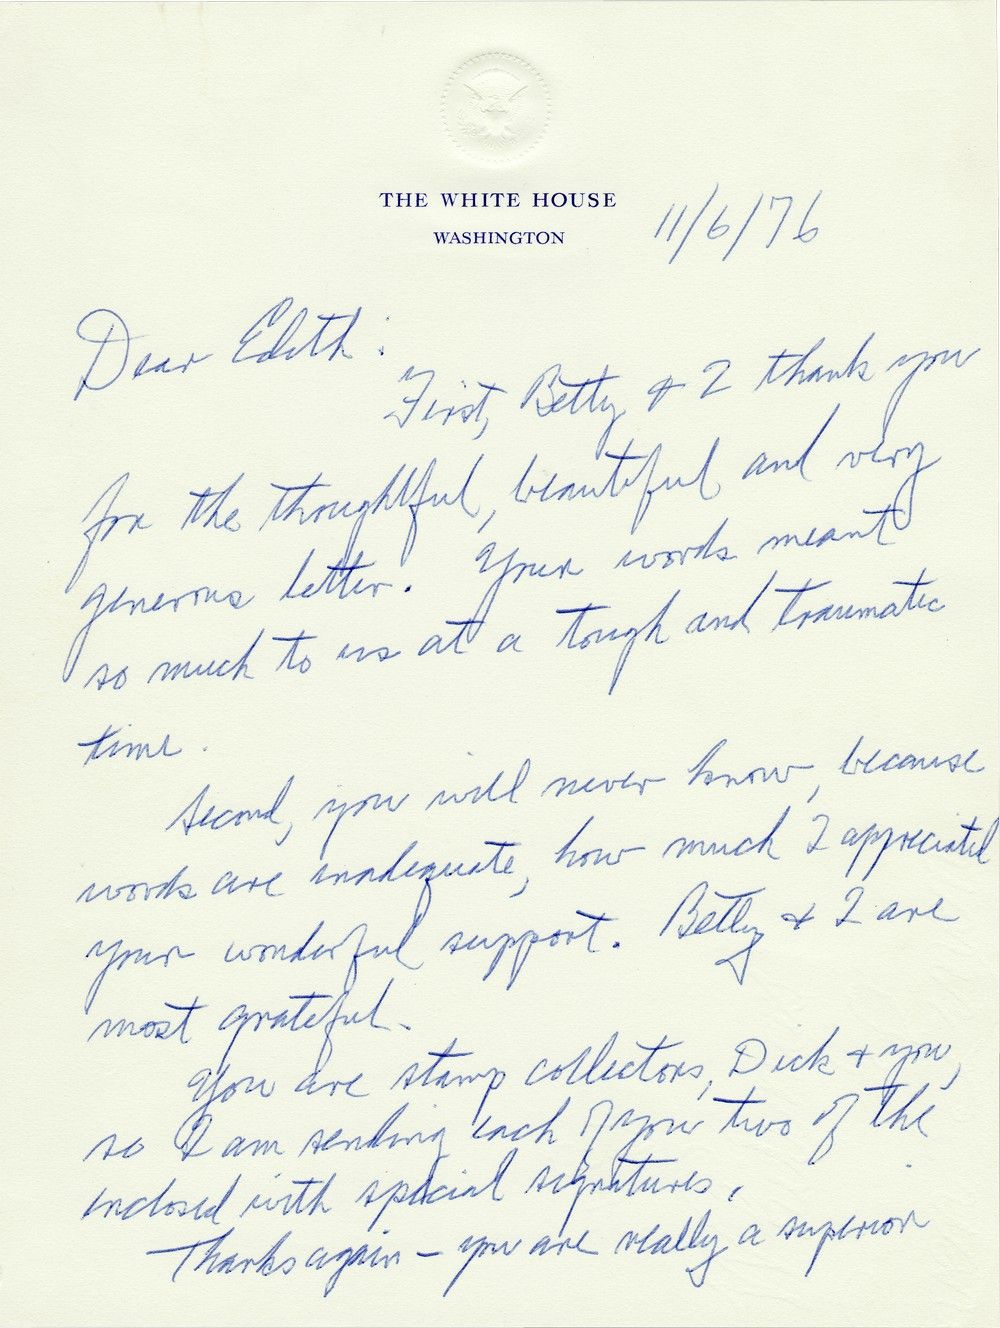 THE WHITE HOUSE
WASHINGTON
11/6/76
Dear Edith:
First, Betty & I thank you
for the thoughtful, beautiful and very
generous letter. Your words meant
so much to us at a tough and traumatic
time.
Second, you will never know, because
words are inadequate, how much I appreciated
your wonderful support. Betty & I are
most grateful.
You are stamp collectors, Dick & you,
so I am sending each of you two of the
enclosed with special signatures.
Thanks again – you are really a superior